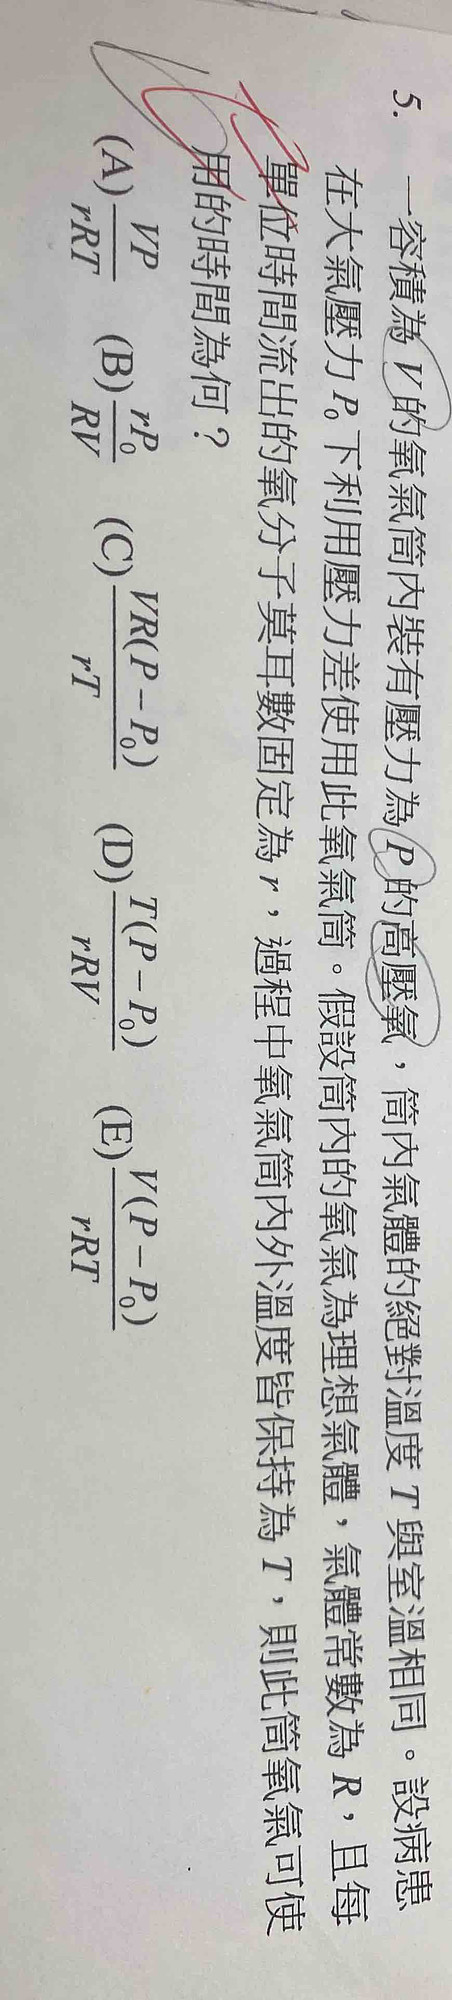 5. 一容積為 V 的氧氣筒內裝有壓力為 P 的高壓氧，筒內氣體的絕對溫度 T 與室溫相同。設病患
在大氣壓力 P₀ 下利用壓力差使用此氧氣筒。假設筒內的氧氣為理想氣體，氣體常數為 R，且每
單位時間流出的氧分子莫耳數固定為 r，過程中氧氣筒內外溫度皆保持為 T，則此筒氧氣可使
用的時間為何？
(A) VP/rRT (B) rP₀/RV (C) VR(P－P₀)/rT (D) T(P－P₀)/rRV (E) V(P－P₀)/rRT